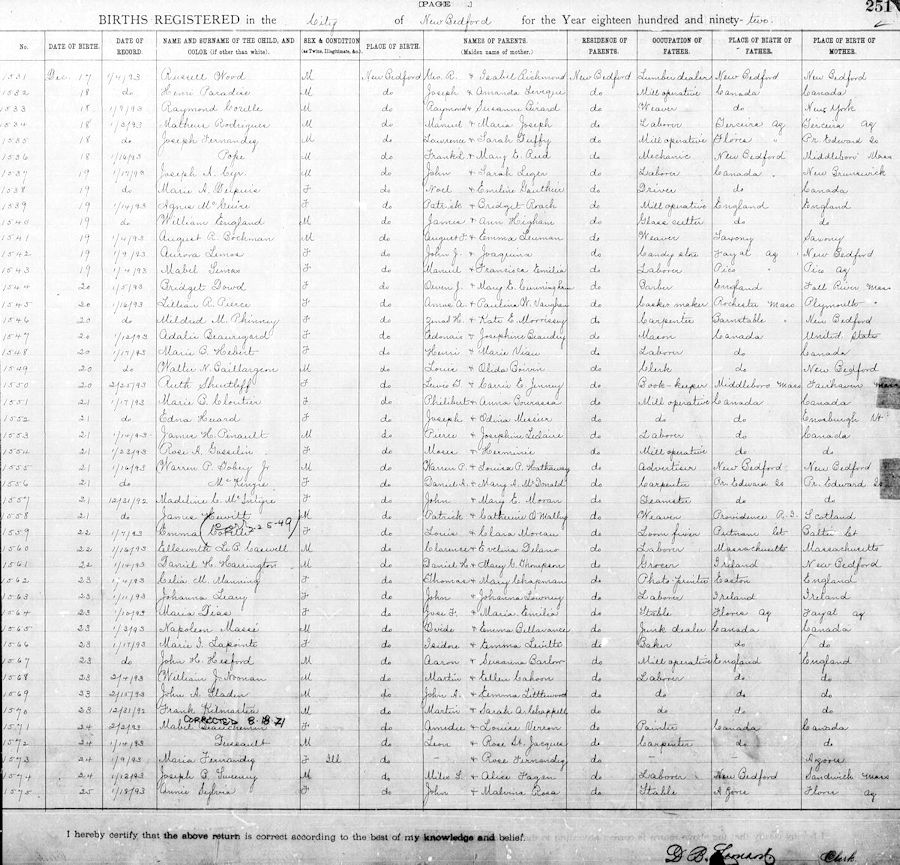 [PAGE ] 251
BIRTHS REGISTERED in the City of New Bedford for the Year eighteen hundred and ninety-two
No. DATE OF BIRTH. DATE OF RECORD. NAME AND SURNAME OF THE CHILD, AND COLOR (if other than white). SEX & CONDITION (as Twins, Illegitimate, &c.) PLACE OF BIRTH. NAMES OF PARENTS. (Maiden name of mother.) RESIDENCE OF PARENTS. OCCUPATION OF FATHER. PLACE OF BIRTH OF FATHER. PLACE OF BIRTH OF MOTHER.
1531 Dec. 17 1/4/93 Russell Wood M New Bedford Geo. R. & Isabel Richmond New Bedford Lumber dealer New Bedford New Bedford
1532 18 do Henri Paradis M do Joseph & Amanda Leveque do Mill operative Canada Canada
1533 18 1/9/93 Raymond M do Raymond & Susanne Girard do Weaver do New York
1534 18 1/3/93 Matheus Rodrigues M do Manuel & Maria Joseph do Laborer Terceira Ag Terceira Ag
1535 18 do Joseph Fernandez M do Lawrence & Sarah Duffy do Mill operative Flores " Pr. Edward Is
1536 18 1/16/93 Pope M do Frank & Mary E. Reed do Mechanic New Bedford Middleboro Mass
1537 19 1/17/93 Joseph A. Cyr M do John & Sarah Leger do Laborer Canada New Brunswick
1538 19 do Marie A. Dupuis F do Noel & Emiline Gauthier do Driver do Canada
1539 19 1/14/93 Agnes McGuire F do Patrick & Bridget Roach do Mill operative England England
1540 19 do William England M do James & Ann Higham do Glass cutter do do
1541 19 1/4/93 August R. Bochman M do August F. & Emma Leuman do Weaver Saxony Saxony
1542 19 1/9/93 Aurora Lemos F do John J. & Joaquina do Candy store Fayal Ag New Bedford
1543 19 1/4/93 Mabel Simas F do Manuel & Francisca Emilia do Laborer Pico " Pico Ag
1544 20 1/5/93 Bridget Dowd F do Owen J. & Mary E. Cunningham do Barber England Fall River Mass
1545 20 1/16/93 Lillian R. Pierce F do A. & Paulina W. Vaughan do Casket maker Rochester Mass Plymouth "
1546 20 do Mildred M. Phinney F do H. & Kate E. Morrissey do Carpenter Barnstable " New Bedford
1547 20 1/12/93 Adalie Beauregard F do Adonais & Josephine Beaudry do Mason Canada United States
1548 20 1/17/93 Marie B. Hebert F do Henri & Marie Viau do Laborer do Canada
1549 20 do Walter N. Gaillargeon M do Louis & Elida Boivin do Clerk do New Bedford
1550 20 2/25/93 Ruth Shurtleff F do Lewis D. & Carrie E. Jenney do Book-keeper Middleboro Mass Fairhaven Mass
1551 21 1/17/93 Marie B. Cloutier F do Philibert & Anna Bourassa do Mill operative Canada Canada
1552 21 do Edna Huard F do Joseph & Odina Messier do do do Enosburgh Vt
1553 21 1/14/93 James H. Penault M do Pierre & Josephine LeClaire do Laborer do Canada
1554 21 1/23/93 Rose A. Gosselin F do Moise & Herminie do Mill operative do do
1555 21 1/16/93 Warren P. Tobey Jr M do Warren P. & Louisa P. Hathaway do Advertiser New Bedford New Bedford
1556 21 do McKenzie F do Daniel A. & Mary A. McDonald do Carpenter Pr. Edward Is Pr. Edward Is
1557 21 12/31/92 Madeline E. McIntyre F do John & Mary E. Moran do Teamster do do
1558 21 do James Hewitt M do Patrick & Catherine O'Malley do Weaver Providence R.I. Scotland
1559 22 1/7/93 Emma F do Louis & Clara Moreau do Loom fixer Putnam Ct Baltic Ct
2-25-49
1560 22 1/16/93 Ellsworth L. P. Caswell M do Clarence & Evelina Delano do Laborer Massachusetts Massachusetts
1561 22 1/14/93 Daniel H. Harrington M do Daniel H. & Mary C. Thompson do Grocer Ireland New Bedford
1562 23 1/4/93 Celia M. Manning F do Thomas & Mary Chapman do Photo Printer Easton England
1563 23 1/11/93 Johanna Leary F do John & Johanna Lowney do Laborer Ireland Ireland
1564 23 1/10/93 Maria Dias F do Jose F. & Maria Emilia do Stable Flores Ag Fayal Ag
1565 23 1/3/93 Napoleon Masse M do Ovide & Emma Bellavance do Junk dealer Canada Canada
1566 23 1/17/93 Marie I. Lapointe F do Isidore & Emma Levitte do Baker do do
1567 23 do John H. Hesford M do Aaron & Susanna Barlow do Mill operative England England
1568 23 2/4/93 William J. Noonan M do Martin & Ellen Cahoon do Laborer do do
1569 23 2/15/93 John A. Sladen M do John A. & Emma Littlewood do do do do
1570 23 12/31/92 Frank Kilmartin M do Martin & Sarah A. Chappell do do do do
CORRECTED 8-18-71
1571 24 2/2/93 Mabel F do Amedee & Louise Verron do Painter Canada Canada
1572 24 1/14/93 Tessault M do Leon & Rose St. Jacques do Carpenter do do
1573 24 1/9/93 Maria Fernandez F Ill do — & Rose Fernandez do — — Azores
1574 24 1/12/93 Joseph P. Sweeney M do Miles F. & Alice Fagan do Laborer New Bedford Sandwich Mass
1575 25 1/18/93 Annie Sylvia F do John & Malvina Rosa do Stable Azores Flores Ag
I hereby certify that the above return is correct according to the best of my knowledge and belief.
D. B. Leonard Clerk.